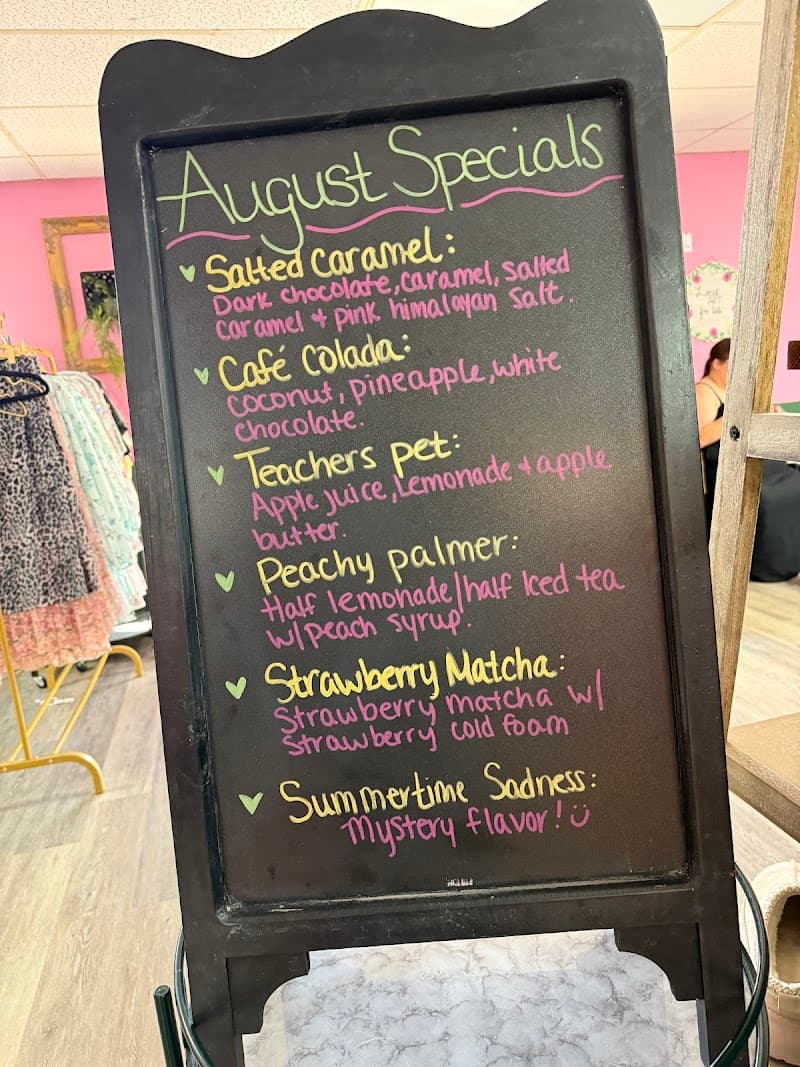 August Specials
Salted Caramel:
Dark chocolate, caramel, salted
caramel + pink himalayan salt.
Café Colada:
coconut, pineapple, white
chocolate.
Teachers pet:
Apple juice, Lemonade + apple
butter.
Peachy palmer:
Half lemonade/half Iced tea
w/peach syrup.
Strawberry Matcha:
Strawberry matcha w/
Strawberry cold foam
Summertime Sadness:
Mystery flavor!